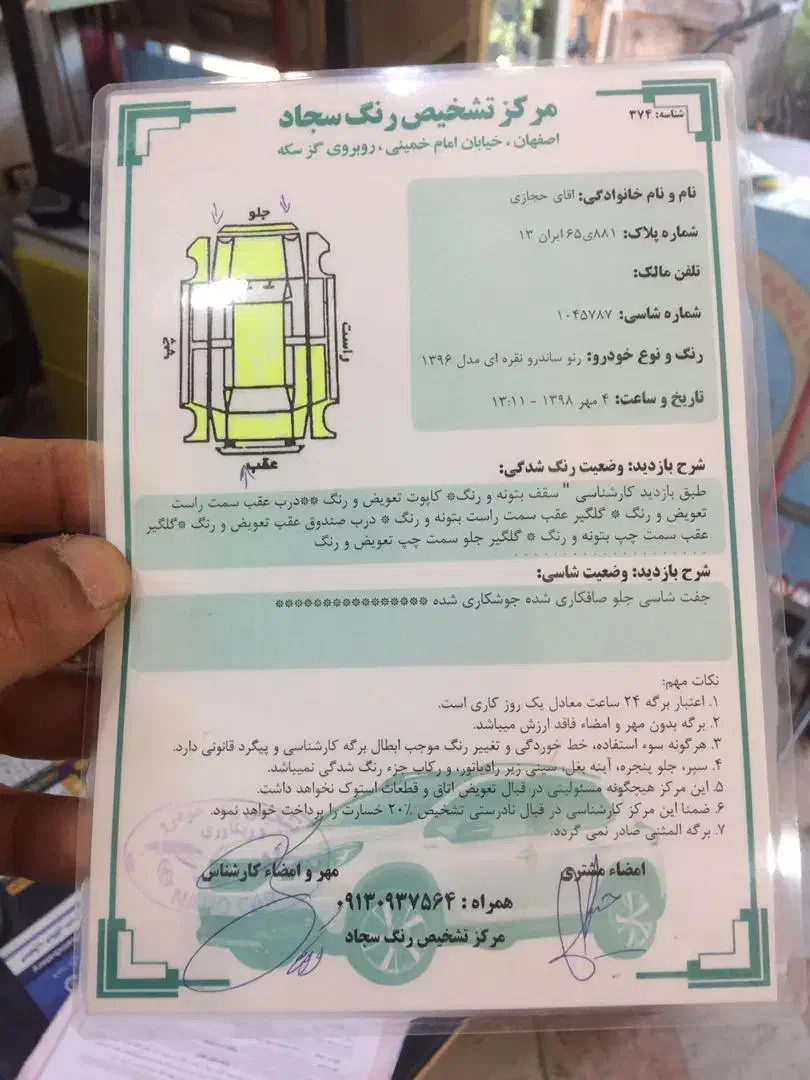 مرکز تشخیص رنگ سجاد
شناسه: ۳۷۴
اصفهان ، خیابان امام خمینی ، روبروی گز سکه
نام و نام خانوادگی: اقای حجازی
شماره پلاک: ۸۸۱ی۶۵ ایران ۱۳
تلفن مالک:
شماره شاسی: ۱۰۴۵۷۸۷
رنگ و نوع خودرو: رنو ساندرو نقره ای مدل ۱۳۹۶
تاریخ و ساعت: ۴ مهر ۱۳۹۸ - ۱۳:۱۱
جلو
راست
چپ
عقب
شرح بازدید: وضعیت رنگ شدگی:
طبق بازدید کارشناسی " سقف بتونه و رنگ* کاپوت تعویض و رنگ **درب عقب سمت راست
تعویض و رنگ * گلگیر عقب سمت راست بتونه و رنگ * درب صندوق عقب تعویض و رنگ *گلگیر
عقب سمت چپ بتونه و رنگ * گلگیر جلو سمت چپ تعویض و رنگ
شرح بازدید: وضعیت شاسی:
جفت شاسی جلو صافکاری شده جوشکاری شده ****************
نکات مهم:
۱. اعتبار برگه ۲۴ ساعت معادل یک روز کاری است.
۲. برگه بدون مهر و امضاء فاقد ارزش میباشد.
۳. هرگونه سوء استفاده، خط خوردگی و تغییر رنگ موجب ابطال برگه کارشناسی و پیگرد قانونی دارد.
۴. سپر، جلو پنجره، آینه بغل، سینی زیر رادیاتور، و رکاب جزء رنگ شدگی نمیباشد.
۵. این مرکز هیچگونه مسئولیتی در قبال تعویض اتاق و قطعات استوک نخواهد داشت.
۶. ضمنا این مرکز کارشناسی در قبال نادرستی تشخیص ۲۰٪ خسارت را پرداخت خواهد نمود.
۷. برگه المثنی صادر نمی گردد.
امضاء مشتری
مهر و امضاء کارشناس
همراه : ۰۹۱۳۰۹۳۷۵۶۴
مرکز تشخیص رنگ سجاد